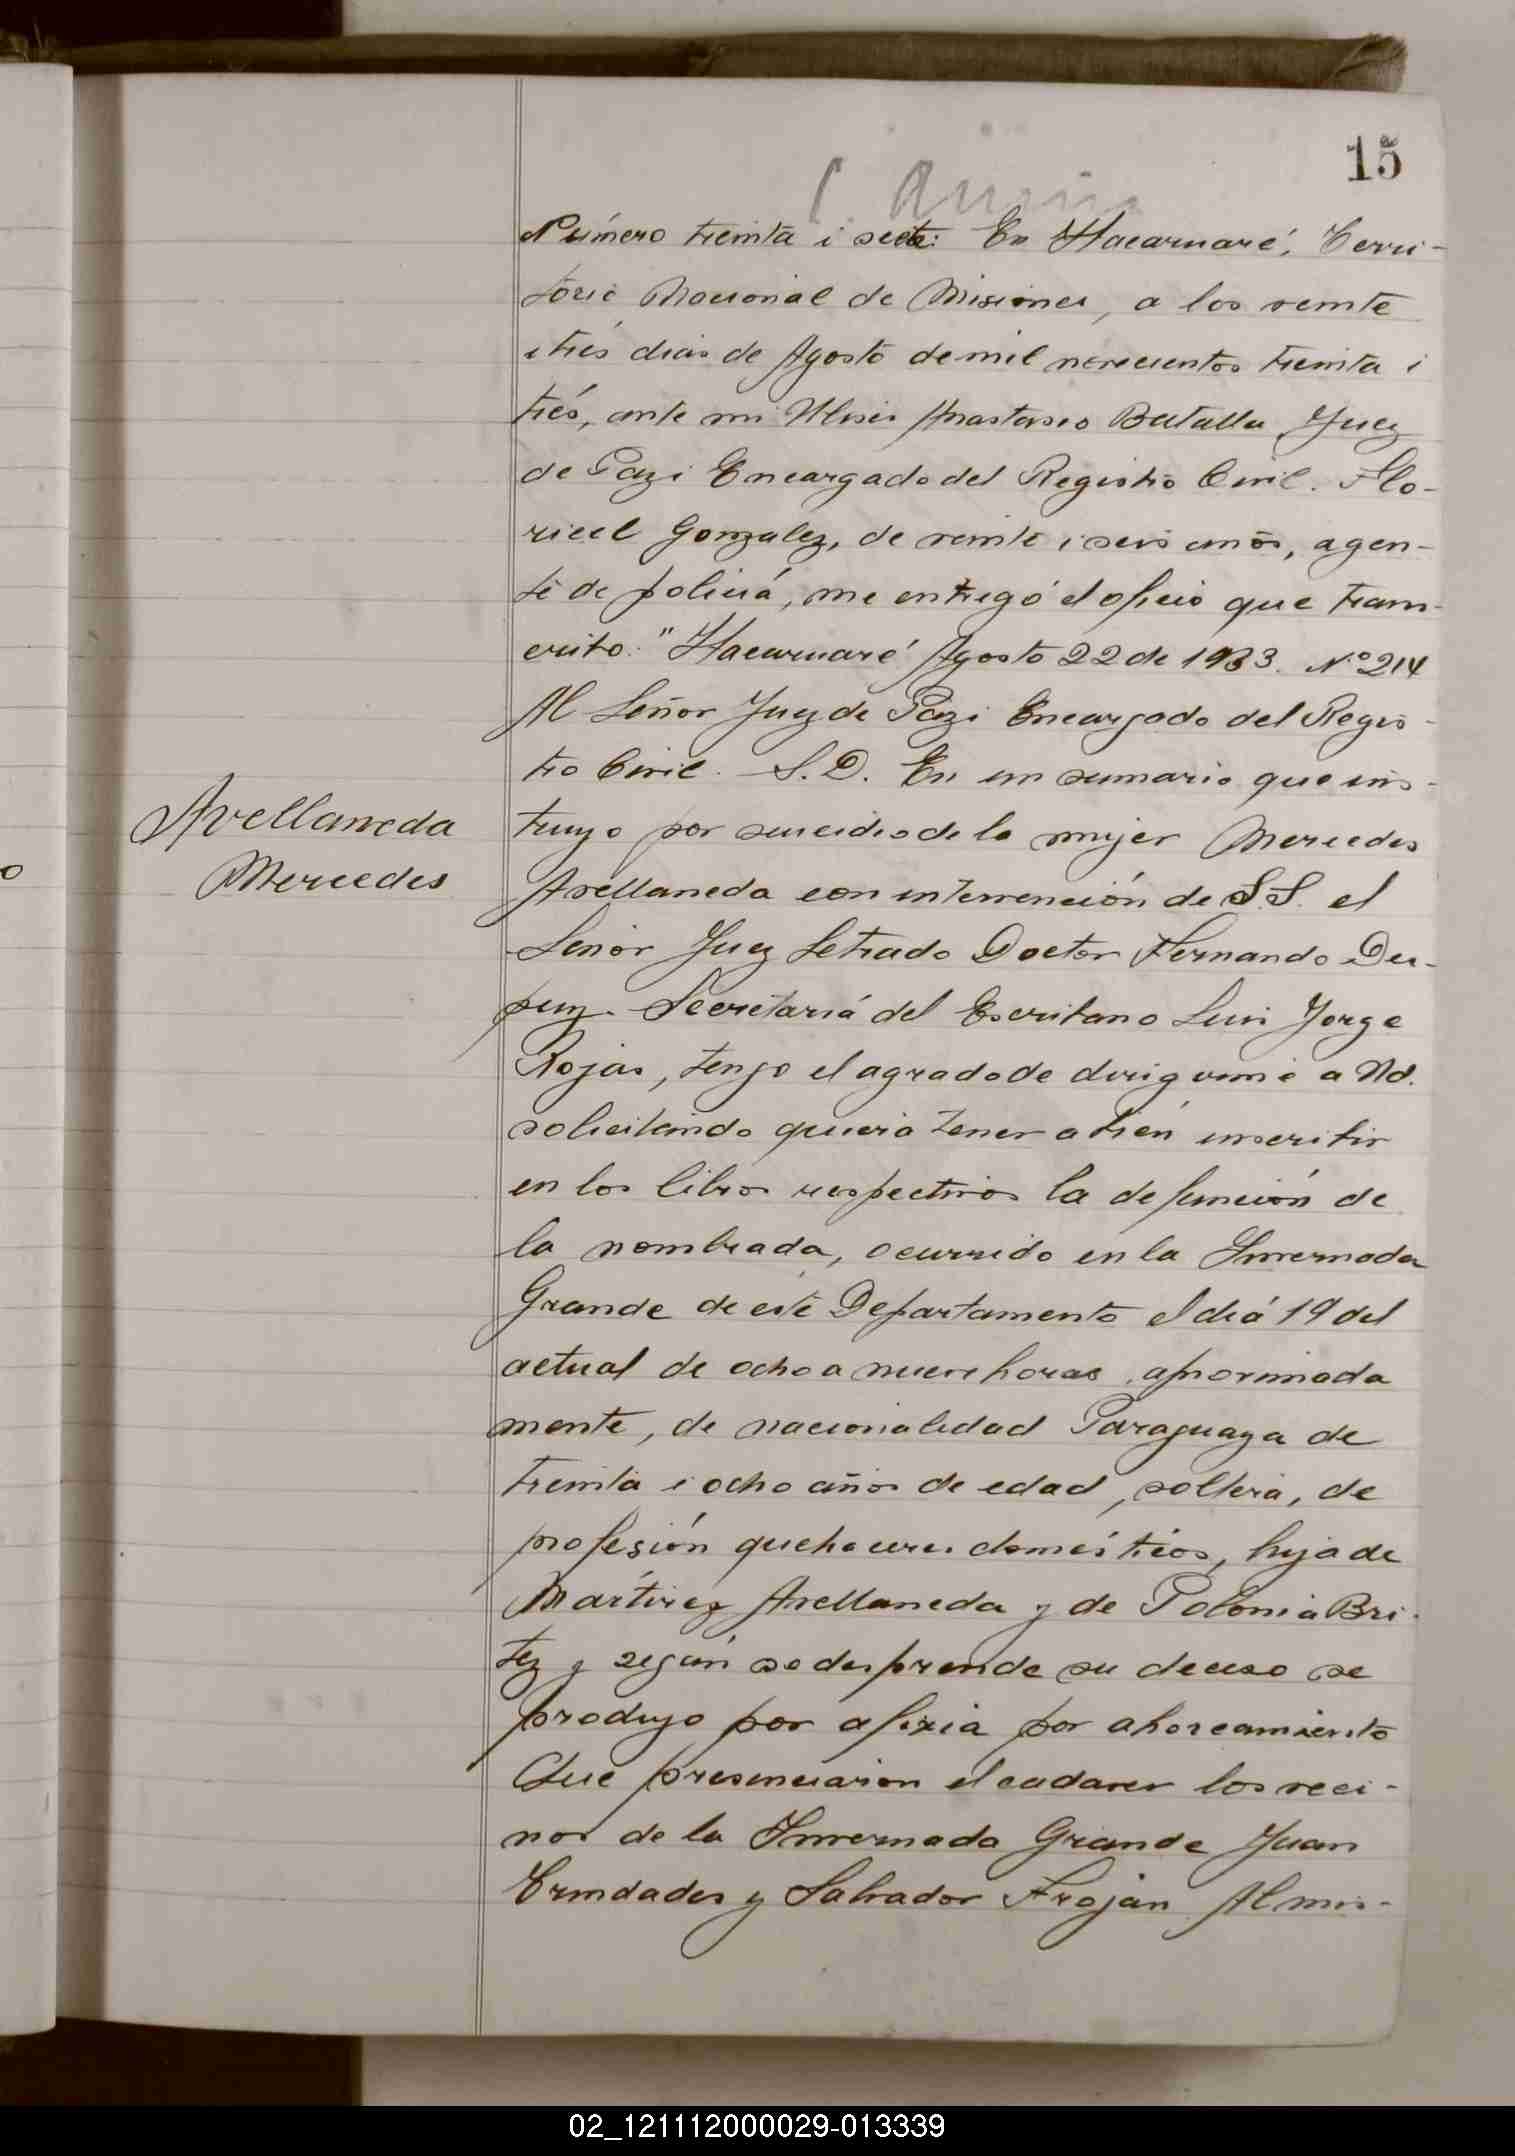 15
Número treinta i siete: En Itacaruaré, Terri-
torio Nacional de Misiones, a los veinte
i trés dias de Agosto de mil novecientos treinta i
trés, ante mi Ulises Anastasio Batalla Juez
de Paz i Encargado del Registro Civil. Flo-
ricel Gonzalez, de veinte i seis años, agen-
te de policiá, me entregó el oficio que trans-
crito: "Itacaruaré Agosto 22 de 1933. Nº 214
Al Señor Juez de Paz i Encargado del Regis-
tro Civil. S. D. En un sumario que ins-
Avellaneda
Mercedes
truyo por suicidio de la mujer Mercedes
Avellaneda con intervención de S.S. el
Señor Juez Letrado Doctor Fernando Du-
puy. Secretariá del Escribano Luis Jorge
Rojas, tengo el agrado de dirigirme a Ud.
solicitando quiera tener a bién inscribir
en los libros respectivos la defunción de
la nombrada, ocurrido en la Invernada
Grande de este Departamento el diá 19 del
actual de ocho a nueve horas, aproximada
mente, de nacionalidad Paraguaya de
treinta i ocho años de edad, soltera, de
profesión quehaceres domésticos, hija de
Mártirez Avellaneda y de Polonia Bri-
tez y según se desprende su deceso se
produjo por afixia por ahorcamiento
Que presenciaron el cadaver los veci-
nos de la Invernada Grande Juan
Trindades y Salvador Froján Al mis-
02_121112000029-013339